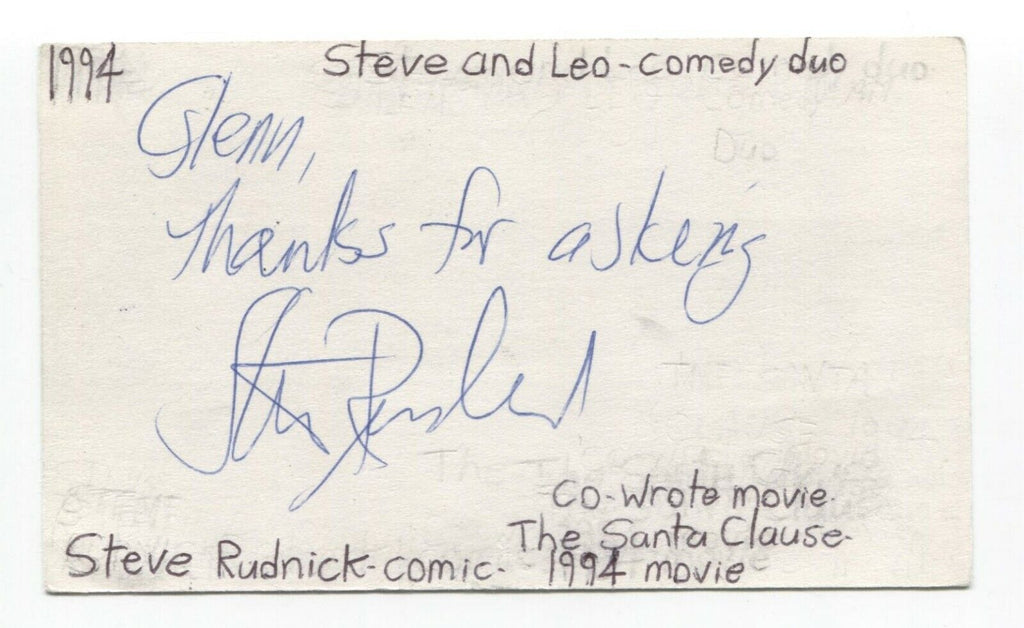 1994
Steve and Leo - comedy duo
Duo
Glenn,
Thanks for asking
Steve Rudnick
Co-Wrote movie.
The Santa Clause-
Steve Rudnick-comic-
1994 movie